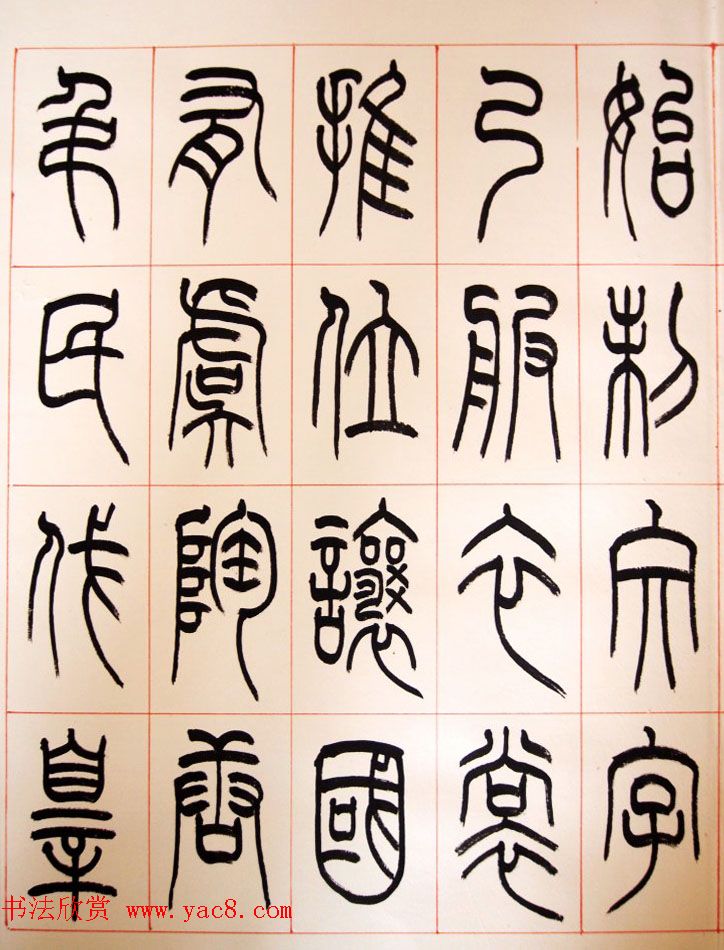 始制文字
乃服衣裳
推位讓國
有虞陶唐
弔民伐辠
书法欣赏 www.yac8.com